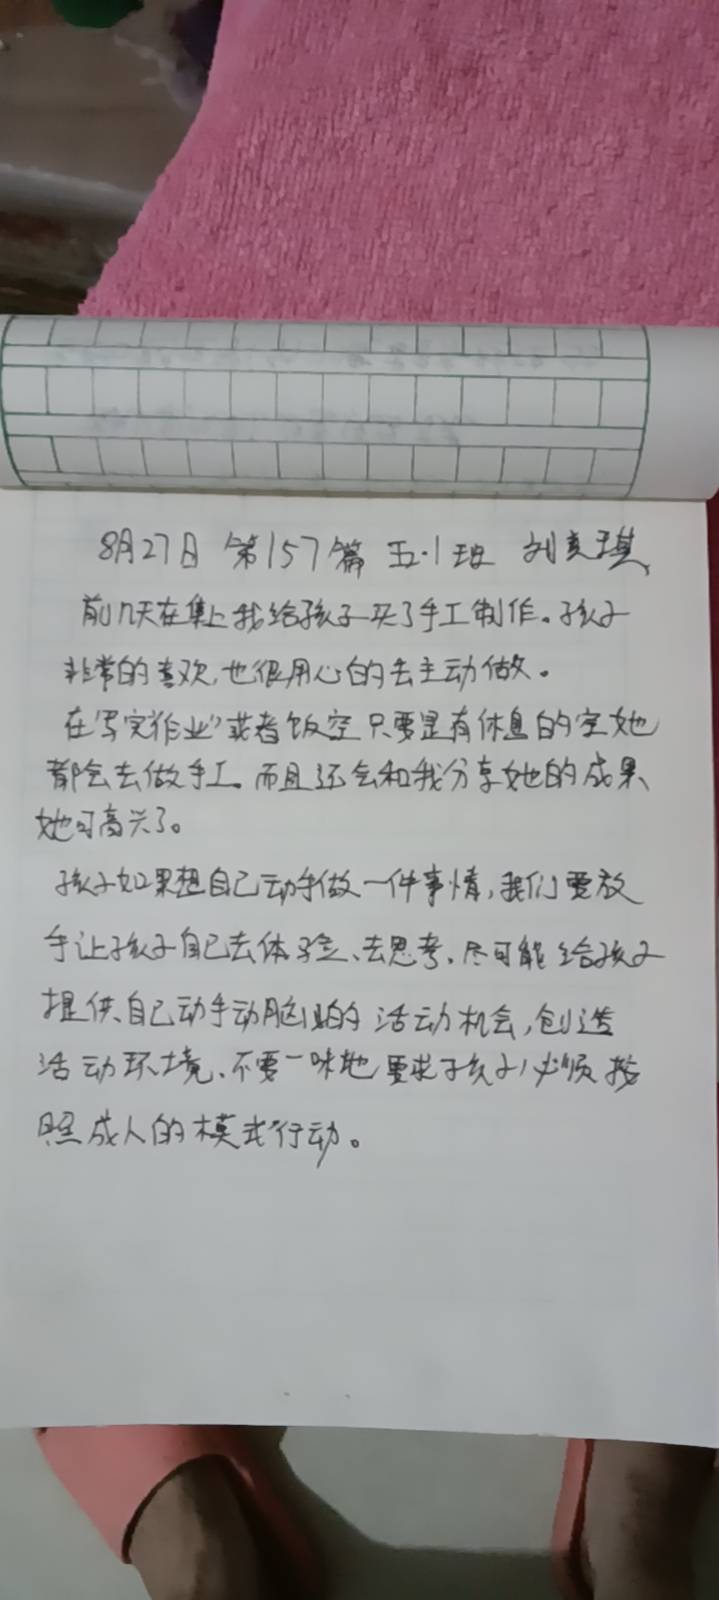 8月27日 第157篇 五.1班 刘奕琪
前几天在集上我给孩子买了手工制作。孩子
非常的喜欢,也很用心的去主动做。
在写完作业或者饭空只要是有休息的空她
都会去做手工。而且还会和我分享她的成果、
她可高兴了。
孩子如果想自己动手做一件事情,我们要放
手让孩子自己去体验、去思考、尽可能给孩子
提供自己动手动脑的活动机会,创造
活动环境、不要一味地要求孩子必须按
照成人的模式行动。